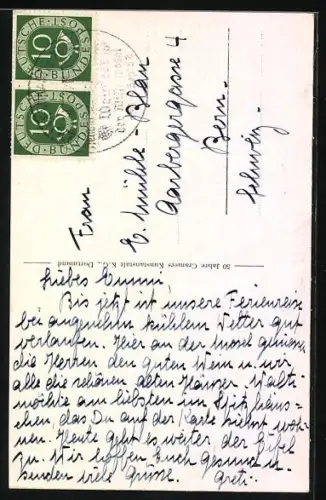 DEUTSCHE BUNDESPOST
10
DEUTSCHE BUNDESPOST
10
Frau
E. Mühle-Blau
Aarbergergasse 4
Bern
Schweiz
50 Jahre Cramers Kunstanstalt K.G., Dortmund
Liebes Emmi
Bis jetzt ist unsere Ferienreise
bei angenehm kühlem Wetter gut
verlaufen. Hier an der Mosel genießen
die Herren den guten Wein u. wir
alle die schönen alten Häuser. Walti
möchte am liebsten im Spitzhäus-
chen, das Du auf der Karte siehst woh-
nen. Heute geht es weiter der Eifel
zu. Wir hoffen Euch gesund u.
senden viele Grüsse. Greti